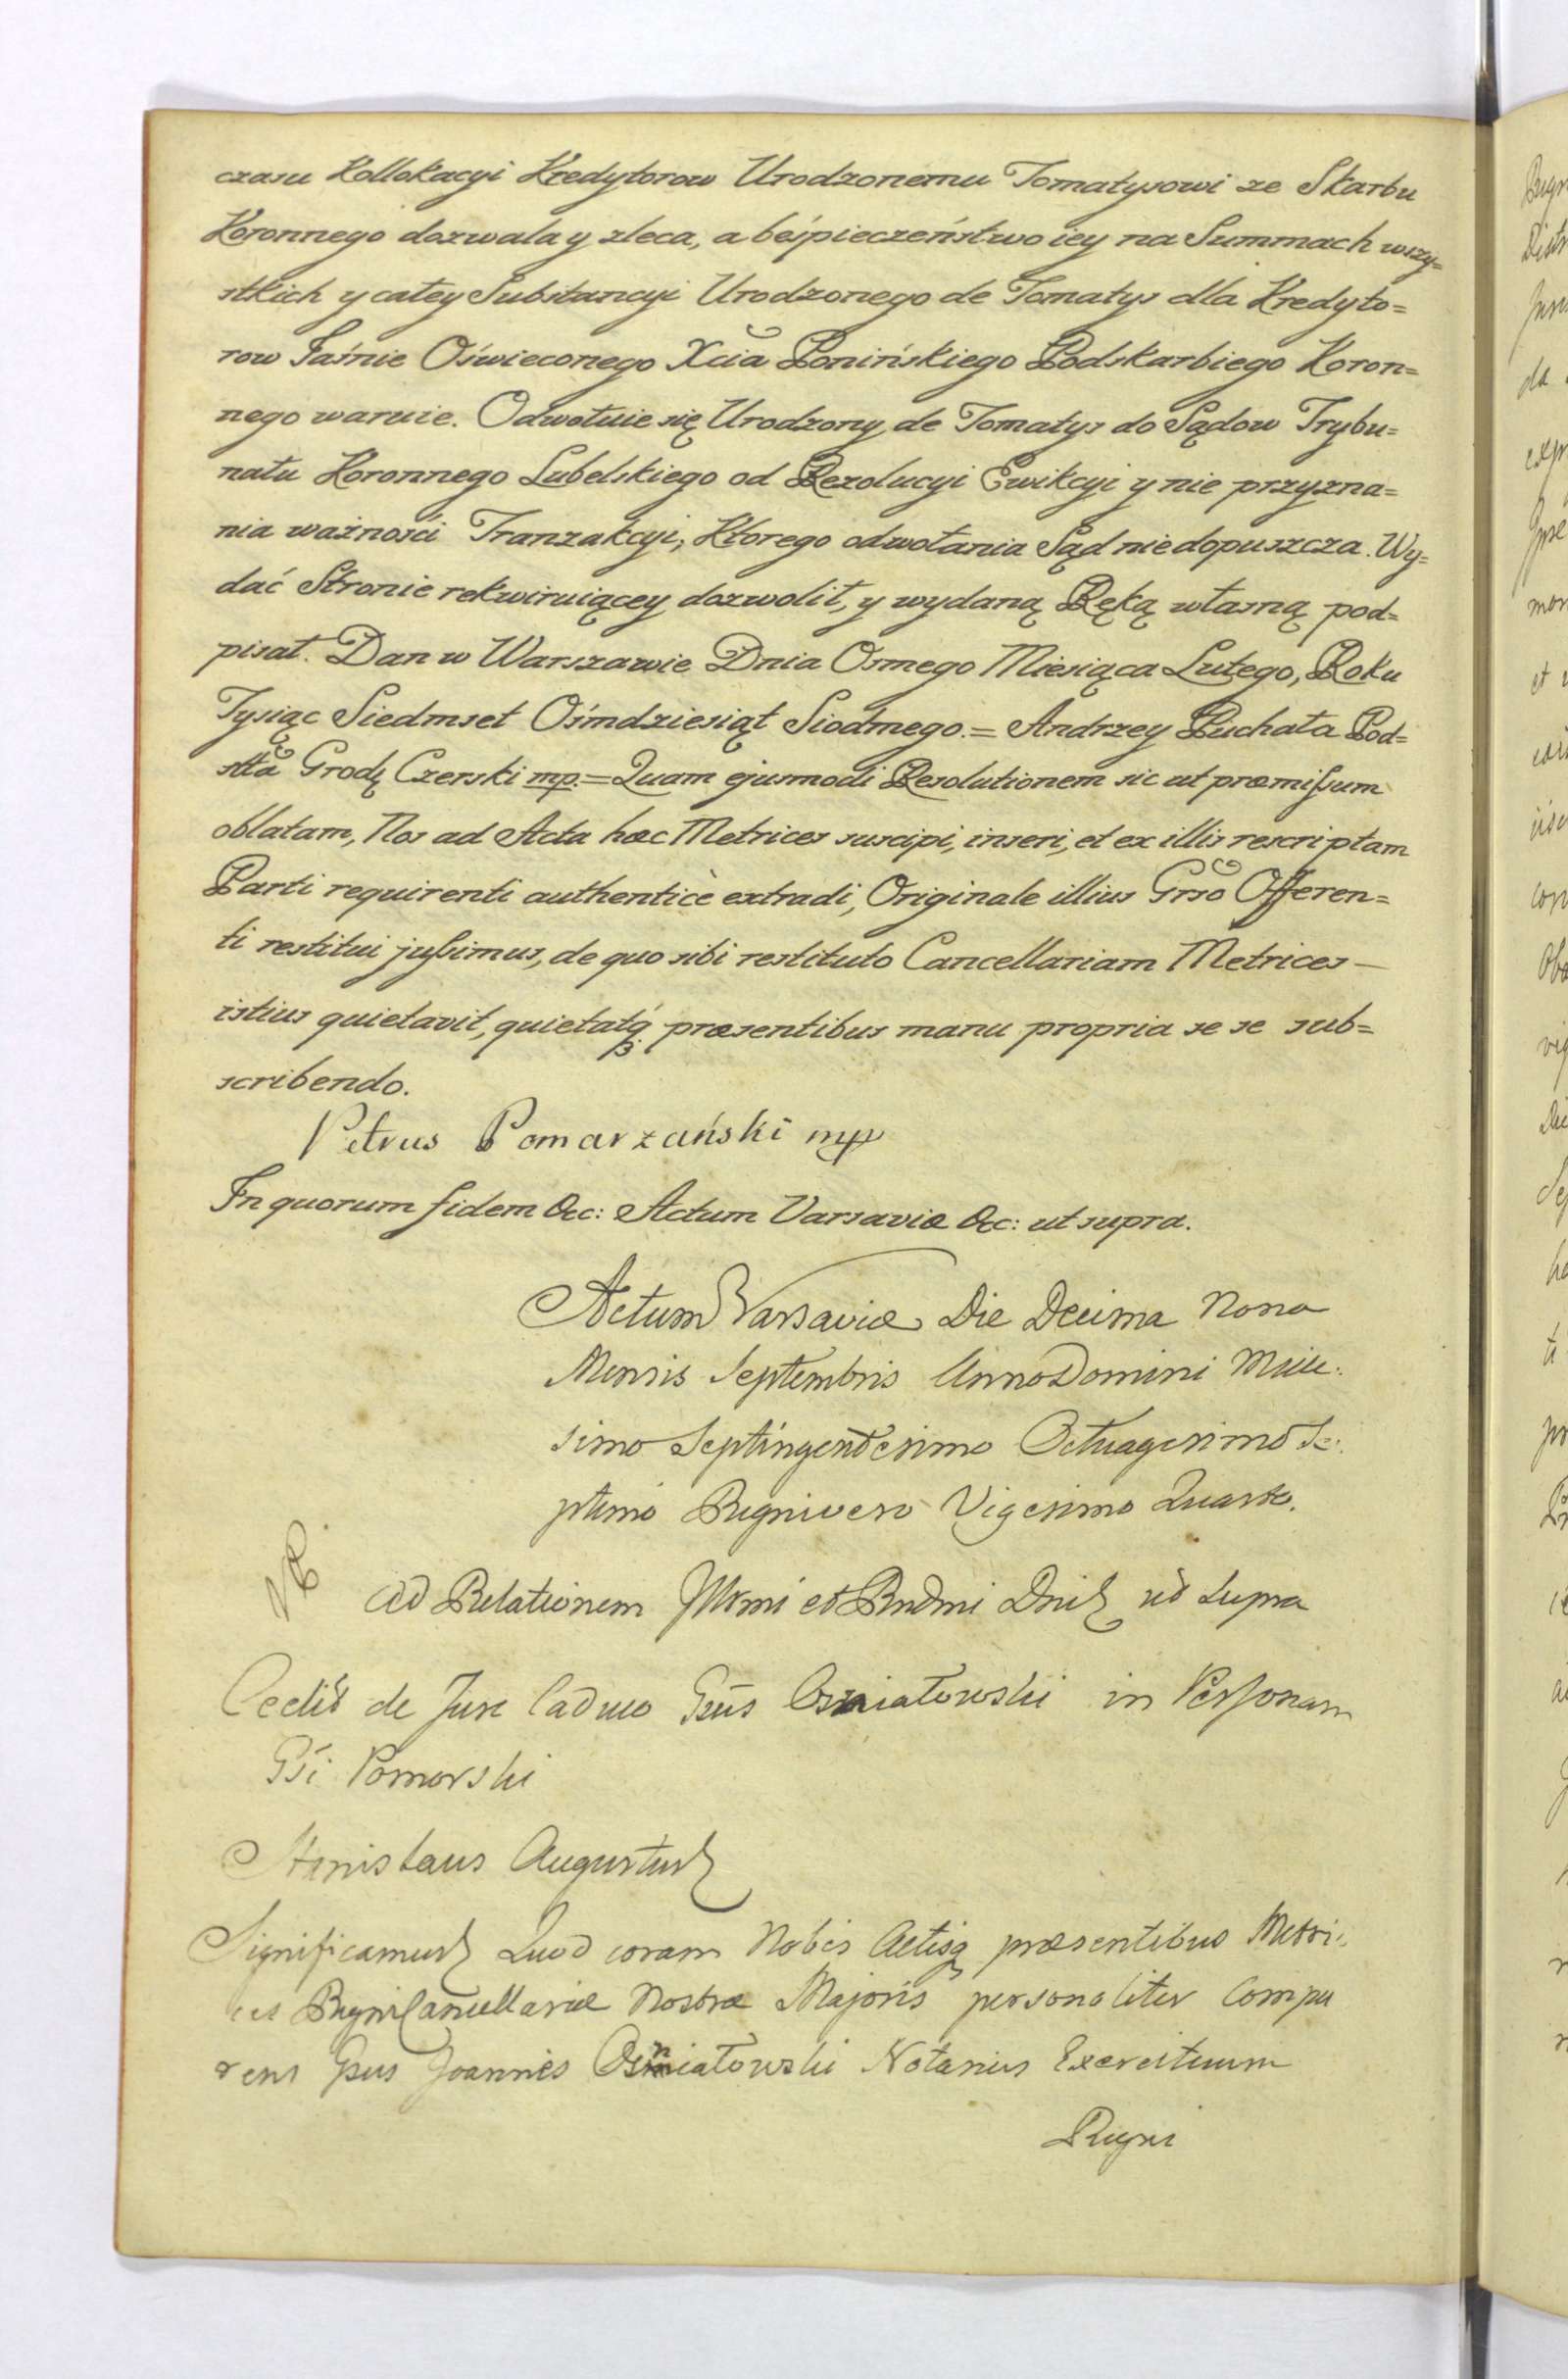 czasu Kollokacyi Kredytorow Urodzonemu Tomatysowi ze Skarbu
Koronnego dozwala y zleca, a beśpieczeństwo iey na Summach wszy=
stkich y całey Substancyi Urodzonego de Tomatys dla Kredyto=
row Jaśnie Oświeconego Xcia Ponińskiego Podskarbiego Koron=
nego waruie. Odwołuie się Urodzony de Tomatys do Sądow Trybu=
nału Koronnego Lubelskiego od Rezolucyi Ewikcyi y nie przyzna=
nia ważności Tranzakcyi, Ktorego odwołania Sąd nie dopuszcza. Wy=
dać Stronie rekwiruiącey dozwolił, y wydaną Ręką własną pod=
pisał. Dan w Warszawie Dnia Osmego Miesiąca Lutego, Roku
Tysiąc Siedmset Ośmdziesiąt Siodmego. = Andrzey Puchała Pod=
stta Grodz Czerski mp. = Quam ejusmodi Resolutionem sic ut præmissum
oblatam, Nos ad Acta hæc Metrices suscipi, inseri, et ex illis rescriptam
Parti requirenti authenticè extradi, Originale illius Grso Offeren=
ti restitui jussimus, de quo sibi restituto Cancellariam Metrices —
istius quietavit, quietatq præsentibus manu propria se se sub=
scribendo.
Petrus Pomarzański mp
In quorum fidem &c: Actum Varsaviæ &c: ut supra.
Actum Varsaviæ Die Decima Nona
Mensis Septembris Anno Domini Mille:
simo Septingentesimo Octuagesimo Se:
ptimo Regni vero Vigesimo Quarto.
Ad Relationem Illrmi et Rndmi Dni ut supra
Cedit de Jure Caduco Gsus Osniatowski in Personam
Gsi Pomorski
Stanislaus Augustus
Significamus Quod coram Nobis Actisq præsentibus Metri:
ces Regni Cancellariæ Nostræ Majoris personaliter Compa
rens Gsus Joannes Osniatowski Notarius Exercituum
Regni